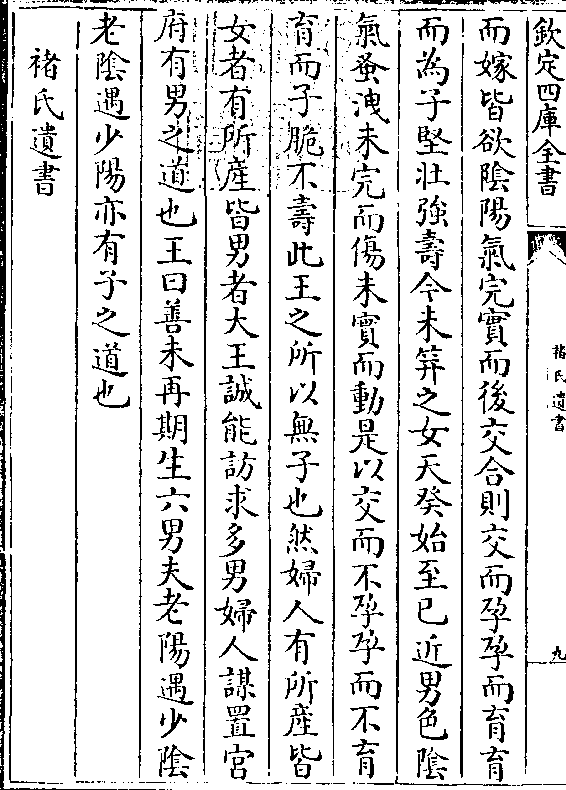 欽定四庫全書
褚氏遺書
九
而嫁皆欲陰陽氣完實而後交合則交而孕孕而育育
而為子堅壯強壽今未筓之女天癸始至已近男色陰
氣蚤洩未完而傷未實而動是以交而不孕孕而不育
育而子脆不壽此王之所以無子也然婦人有所產皆
女者有所產皆男者大王誠能訪求多男婦人謀置宮
府有男之道也王曰善未再期生六男夫老陽遇少陰
老陰遇少陽亦有子之道也
褚氏遺書